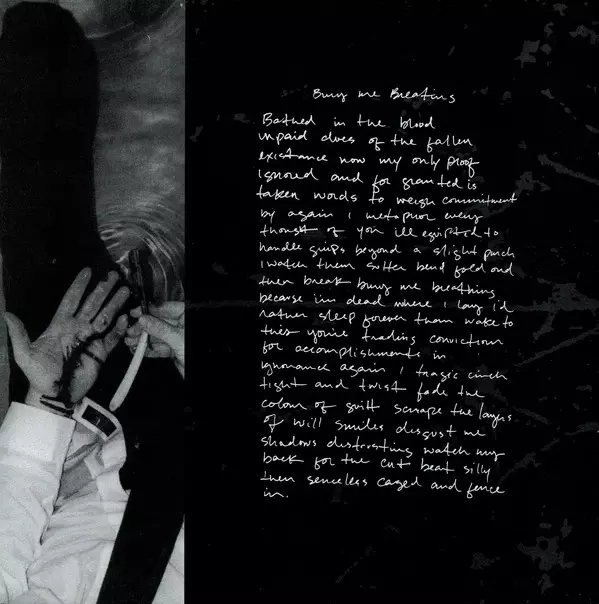 Bury me Breating
Bathed in the blood
unpaid dues of the fallen
existance now my only proof
ignored and for granted is
taken words to weigh commitment
by again i metaphor every
thought of you ill equipted to
handle grips beyond a slight
I watch them bend fold and
then break bury me breathing
because im dead where i lay i'd
rather sleep forever than wake to
this you're trading conviction
for accomplishments in
ignorance again i tragic cinch
tight and twist fade the
colour of guilt scrape the layers
of will smiles disgust me
shadows watch my
back for the cut beat silly
then senceless caged and fence
in.